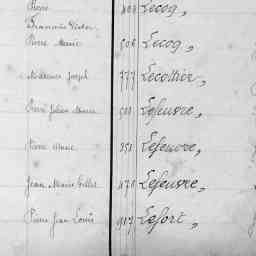 Pierre Lecoq,
François Victor
Pierre Marie 506 Lecoq,
Joseph 777 Lecottier,
Pierre Julien Marie Lefeuvre,
Pierre Marie 351 Lefeuvre,
Jean Marie Gilles 470 Lefeuvre,
Pierre Jean Louis 917 Lefort,